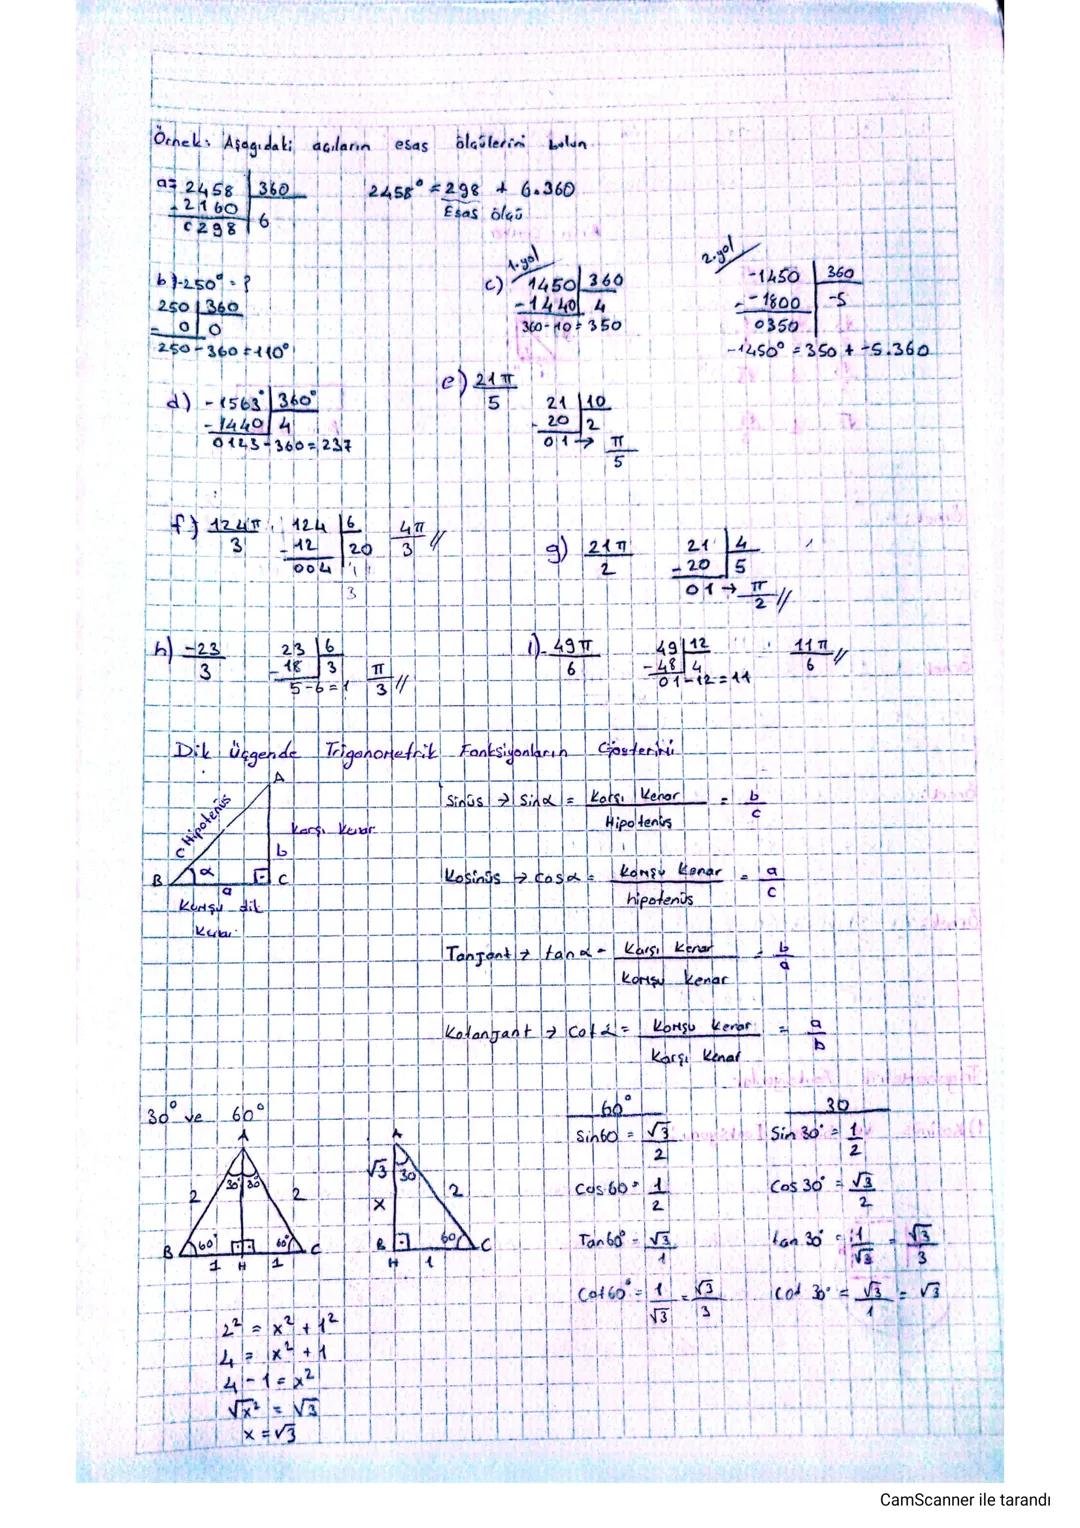 Örnek: Aşagıdaki açıların esas ölçülerini bulun
a= 2458 | 360
- 2160 | 6
0298
2458° = 298 + 6.360
Esas ölçü
b) -250° = ?
250 | 360
- 0 | 0
250 - 360 = 110°
c) 1.yol
1450 | 360
- 1440 | 4
360-10 = 350
2.yol
-1450 | 360
- -1800 | -5
0350
-1450° = 350 + -5.360
d) -1563° | 360°
- 1440 | 4
0123 - 360 = 237
e) 21π/5
21 | 10
- 20 | 2
01 → π/5
f) 124π/3
124 | 6
- 12 | 20
004
3
4π/3 //
g) 21π/2
21 | 4
- 20 | 5
01 → π/2 //
h) -23/3
23 | 6
- 18 | 3
5-6 = 1
π/3 //
ı) - 49π/6
49 | 12
- 48 | 4
01-12 = 11
11π/6 //
Dik üçgende Trigonometrik Fonksiyonların Gösterimi
A
c Hipotenüs
Karşı Kenar
b
B α C
a
Komşu dik
Kenar
Sinüs → Sinα = Karşı Kenar / Hipotenüs = b/c
Kosinüs → Cosα = Komşu Kenar / hipotenüs = a/c
Tanjant → tanα = Karşı Kenar / Komşu Kenar = b/a
Kotanjant → Cotα = Komşu Kenar / Karşı Kenar = a/b
30° ve 60°
A
30° 30°
2 2
B 60° 60° C
1 H 1
A
√3 30
x 2
B 60° C
H 1
2² = x² + 1²
4 = x² + 1
4 - 1 = x²
√x² = √3
x = √3
60°
Sin60 = √3/2
Cos60° = 1/2
Tan60° = √3/1
Cot60° = 1/√3 = √3/3
30
Sin 30° = 1/2
Cos 30° = √3/2
tan 30° = 1/√3 = √3/3
Cot 30° = √3/1 = √3
CamScanner ile tarandı